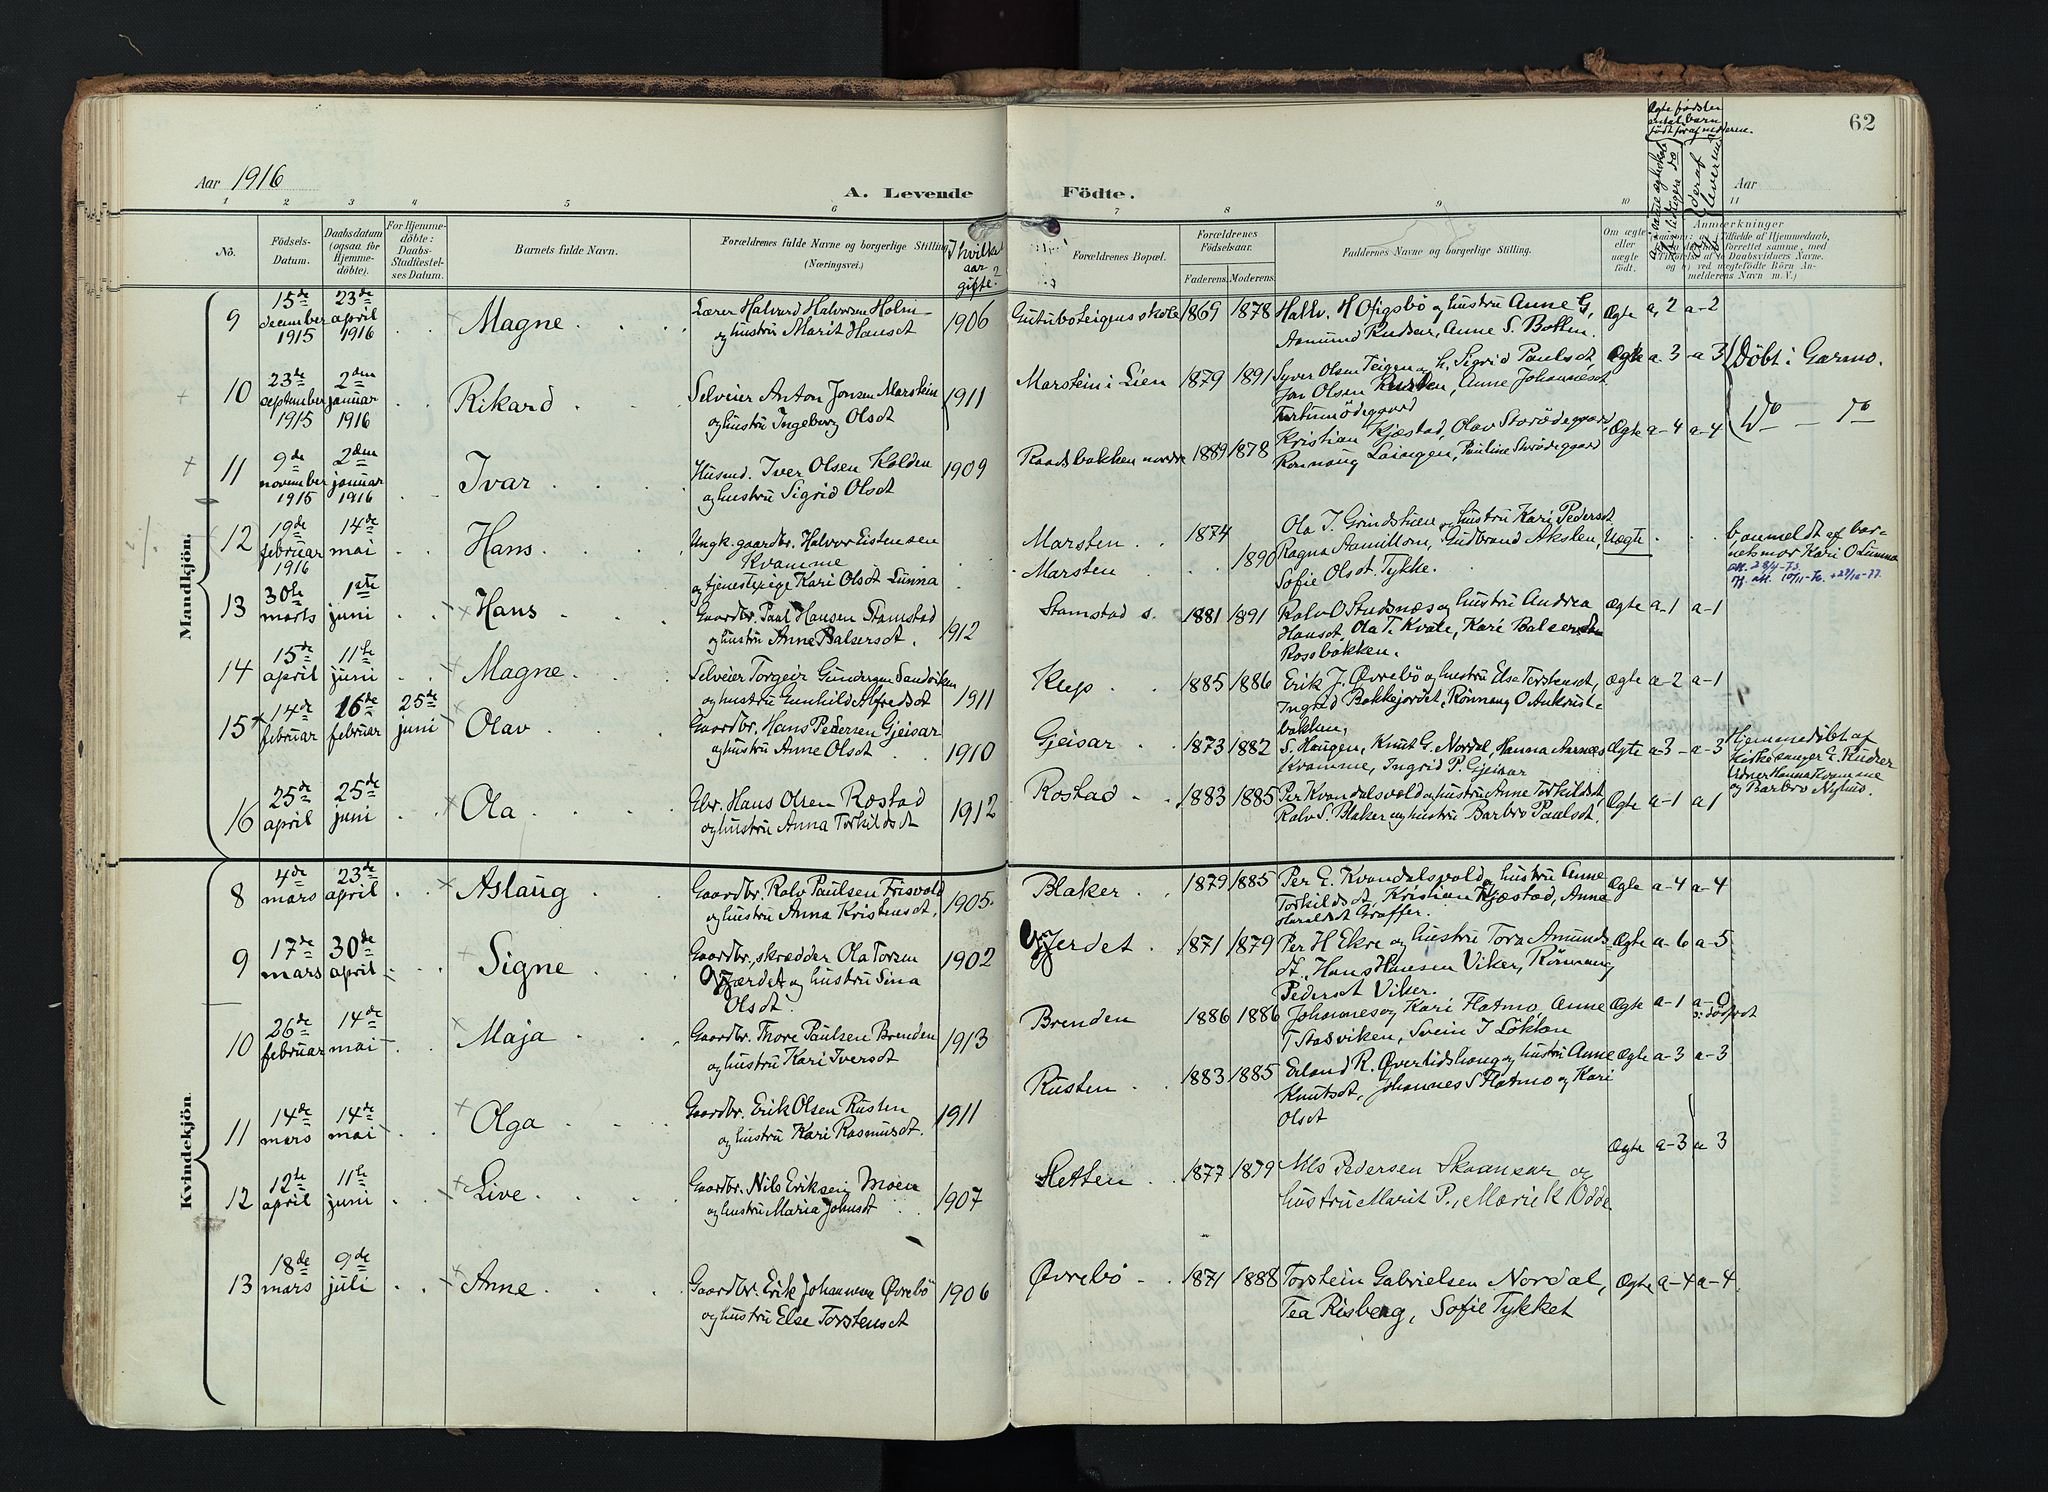 62
Aar 1916
A. Levende Födte.
Aar
1 2 3 4 5 6 7 8 9 10 11
No.
Födsels-
Datum.
Daabsdatum
(ogsaa for
Hjemme-
döbte).
For Hjemme-
döbte:
Daabs-
Stadfæstel-
ses Datum.
Barnets fulde Navn.
Forældrenes fulde Navne og borgerlige Stilling
(Næringsvei.)
I hvilket
aar
gifte?
Forældrenes Bopæl.
Forældrenes
Födselsaar.
Faderens. Moderens.
Faddernes Navne og borgerlige Stilling.
Om ægte
eller
uægte
födt.
Anmerkninger
Mandkjön.
9
15de december 1915
23de april 1916
Magne
Lærer Halvard Halvorsen Holm
og hustru Marit Hansdt
1906
Gutubøteigens skole
1869 1878
Hallv. H Oligsbø og hustru Anne G,
Aamund Rudser, Anne S. Botten.
Ægte a, 2 a-2
10
23de september 1915
2den januar 1916
Rikard
Selveier Anton Jonsen Marstein
og hustru Ingeborg Olsdt
1911
Marstein i Lien
1879 1891
Syver Olsen Teigen og h. Sigrid Paulsdt
Jon Olsen Rusten, Anne Johannesdt
Ægte a 3 a 3
Döbt i Garmo.
11
9de november 1915
2den januar 1916
Ivar
Husmd. Iver Olsen Kolden
og hustru Sigrid Olsdt
1909
Raadsbakken nordre
1889 1878
Kristian Kjæstad, Olav Storødegaard,
Rønnaug Laingen, Pauline Storødegaard
Ægte a-4 a-4
Do - Do
12
19de februar 1916
14de mai
Hans
Ungk. gaardbr. Halvor Eistensen
Kvamme
og tjenestepige Kari Olsdt Lunna
Marsten
Marsten
1874
1890
Ola J. Grindstuen og hustru Kari Pedersdt
Ragna Aamillom, Gudbrand Akslen,
Sofie Olsdt Tykke.
Uægte
b anmeldt af bar-
netsmor Kari O Lunna
13
30te marts
1ste juni
Hans
Gaardbr. Paal Hansen Stamstad
og hustru Anne Balsersdt.
1912
Stamstad s.
1881 1891
Rolv O Studsnæs og hustru Andrea
Hansdt, Ola T. Kvale, Kari Balsersdtr
Rossbakken.
Ægte a-1 a-1
14
15de april
11te juni
Magne
Selveier Torgeir Gundersen Sandviken
og hustru Gunhild Alfredsdt
1911
Klep
1885 1886
Erik J. Øvrebø og hustru Else Torstensdt,
Ingrid Bakkejordet, Rönnaug O Ankrust-
bakken,
Ægte a-2 a-1
15
14de februar
16de februar
25de juni
Olav
Gaardbr. Hans Pedersen Gjeisar
og hustru Anne Olsdt
1910
Gjeisar
1873 1882
S. Haugen, Knut G. Nordal, Hanna Aarnæs
Kvamme, Ingrid P. Gjeisar
Ægte a-3 a-3
Hjemmedöbt af
Kirkesanger E. Rudser
Vidner Hanna Kvamme
og Barbro Nylund.
16
25de april
25de juni
Ola
Gbr. Hans Olsen Røstad
og hustru Anna Torkildsdt
1912
Rostad
1883 1885
Per Kvandalsvold og hustru Anne Torkildsdt,
Rolv S. Blaker og hustru Barbro Paulsdt.
Ægte a-1 a 1
Kvindekjön.
8
4de mars
23de april
Aslaug
Gaardbr. Rolv Paulsen Frisvold
og hustru Anna Kristensdt.
1905
Blaker
1879 1885
Per E. Kvandalsvold, hustru Anne
Torkildsdt, Kristian Kjæstad, Anne
Haraldsdt Graffer.
Ægte a-4 a-4
9
17de mars
30de april
Signe
Gaardbr., skrædder Ola Torsen
Gjærdet og hustru Sina
Olsdt.
1902
Gjerdet
1871 1879
Per H Ekre og hustru Tora Amunds-
dt, Hans Hansen Viker, Rönnaug
Pedersdt Viker.
Ægte a-6 a-5
10
26de februar
14de mai
Maja
Gaardbr. Thore Paulsen Brenden
og hustru Kari Iversdt
1913
Brenden
1886 1886
Johannes og Kari Flatmo, Anne
T Aasviken, Svein J Løkken
Ægte a-1 a-0
dødfødt
11
14de mars
14de mai
Olga
Gaardbr. Erik Olsen Rusten
og hustru Kari Rasmusdt.
1911
Rusten
1883 1885
Erland R. Øvstidshaug og hustru Anne
Knutsdt, Johannes S Flatmo og Kari
Olsdt
Ægte a-3 a-3
12
12te april
11te juni
Live
Gaardbr. Nils Eriksen Moen
og hustru Maria Johnsdt
1907
Sletten
1877 1879
Nils Pedersen Skaansar og
hustru Marit P., Marie K Odde
Ægte a-3 a 3
13
18de mars
9de juli
Anne
Gaardbr. Erik Johannesen Øvrebö
og hustru Else Torstensdt
1906
Øvrebö
1871 1888
Torstein Gabrielsen Nordal,
Tea Risberg, Sofie Tykket
Ægte a-4 a-4